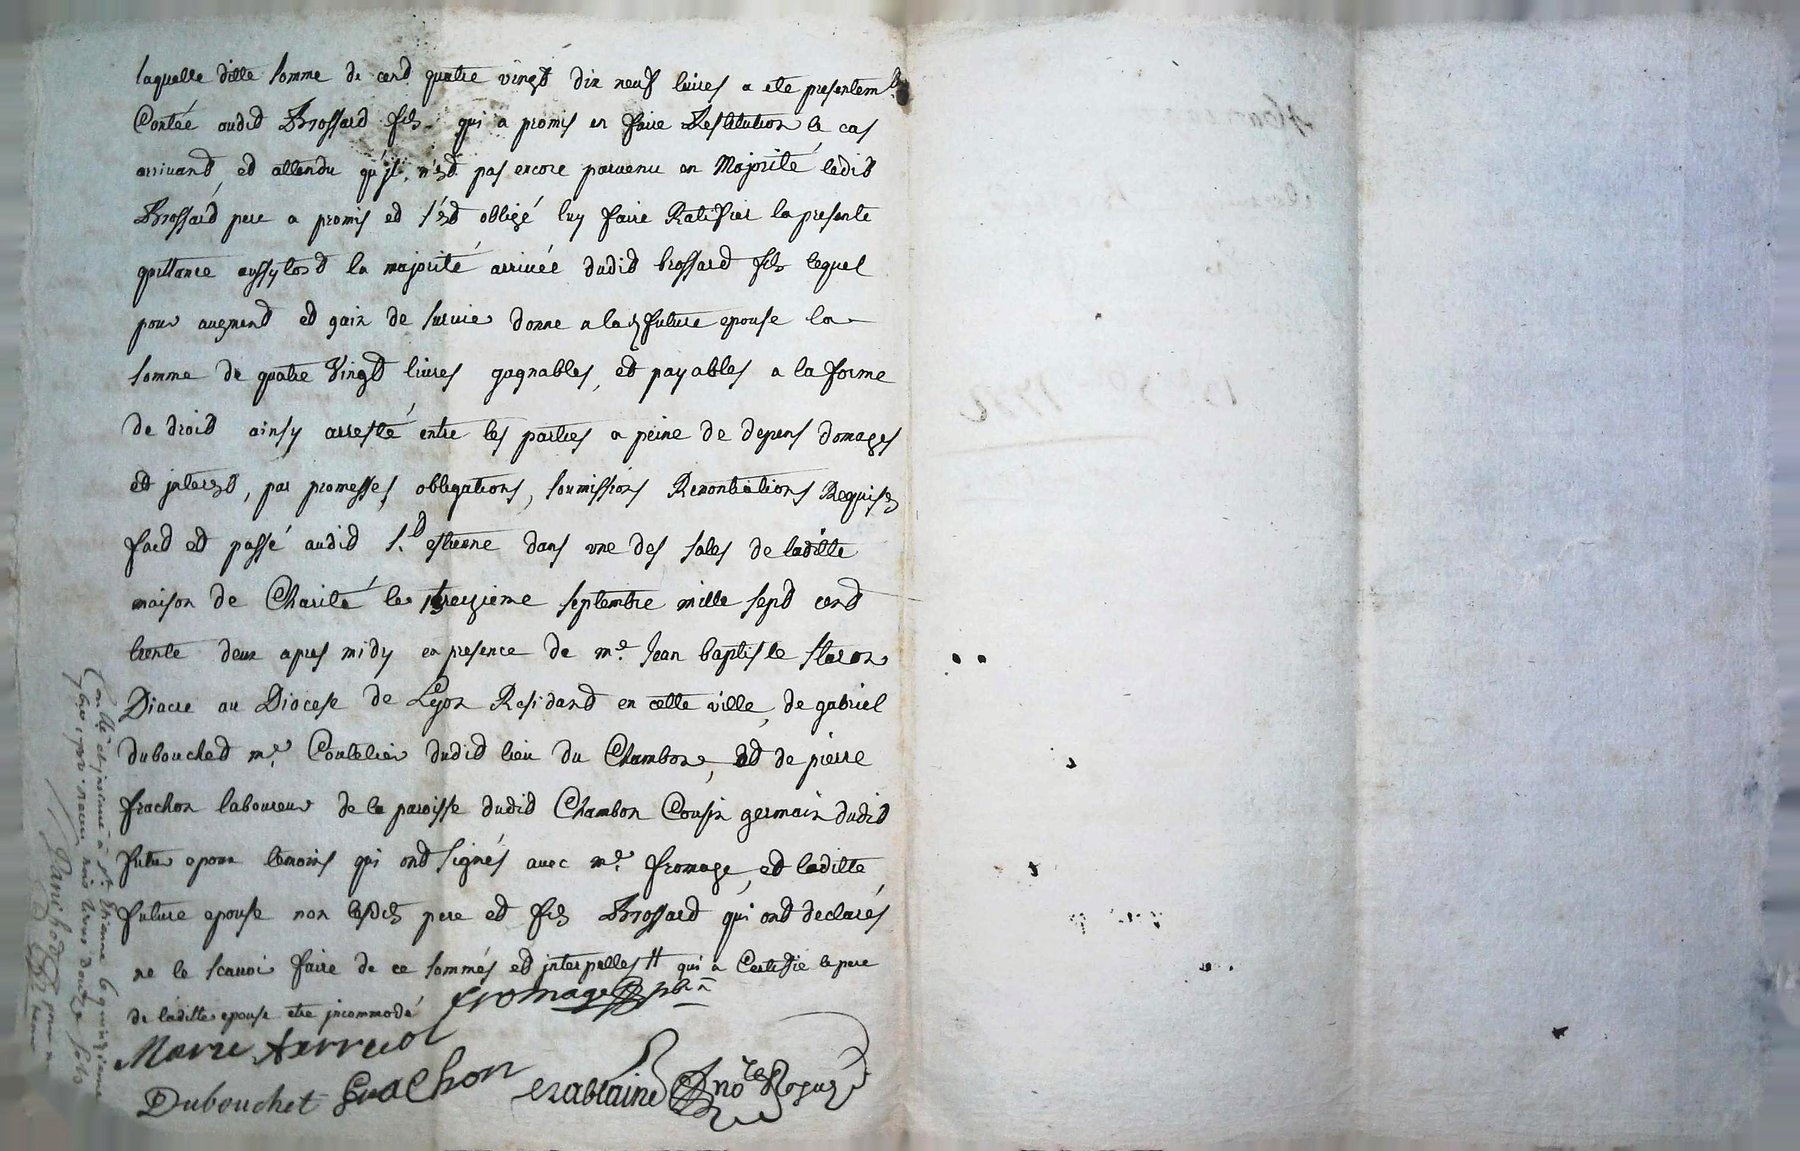 laquelle ditte somme de cent quatre vingt dix neuf livres a ete presentemt
Contée audit Brossard fils qui a promis en faire Restitution le cas
arrivant, et attendu qu'jl n'est pas encore parvenu en Majorité ledit
Brossard pere a promis et s'est obligé luy faire Ratifier la presente
quittance aussytost la majorité arrivée dudit brossard fils lequel
pour augment et gain de survie donne a lad future epouse la
somme de quatre Vingt livres gagnables, et payables a la forme
de droit ainsy arresté entre les parties a peine de depens domages
et jnterest, par promesses, obligations, soumissions Renontiations Requises
fact et passé audit St estienne dans une des sales de laditte
maison de Charité le treizieme septembre mille sept cent
trente deux apres midy en presence de me Jean baptiste
Diacre au Diocese de Lyon Residant en cette ville, de gabriel
dubouchet me Coutelier dudit lieu du Chambon, et de pierre
frachon laboureur de la paroisse dudit Chambon Cousin germain dudit
futur epoux temoins qui ont signés avec me fromage, et laditte
future epouse non lesdits pere et fils Brossard qui ont declarés
ne le scavoir faire de ce sommés et jnterpelles H qui a Certifié le pere
de laditte epouse etre jncommodé
fromage
Marie
Dubouchet frachon no.re Royal
Con.llé et jnsinué a St. Etienne le quinzieme
7bre 1732. receu trois livres douze sols
12 7bre 1732